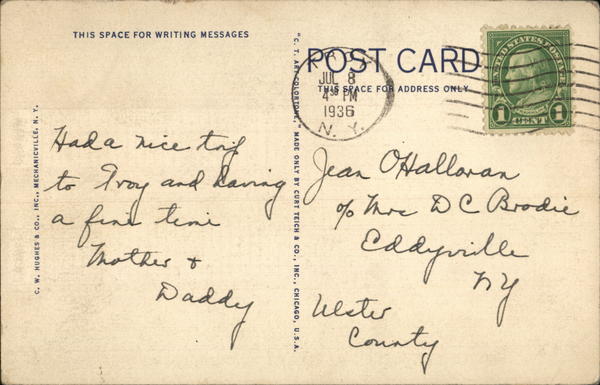 THIS SPACE FOR WRITING MESSAGES
POST CARD
THIS SPACE FOR ADDRESS ONLY
JUL 8
4 30 PM
1936
N. Y.
UNITED STATES POSTAGE
1 CENT 1
C. W. HUGHES & CO., INC., MECHANICVILLE, N. Y.
Had a nice trip
to Troy and having
a fine time
Mother &
Daddy
"C. T. ART-COLORTONE" MADE ONLY BY CURT TEICH & CO., INC., CHICAGO, U.S.A.
Jean O'Halloran
c/o Mrs D C Brodie
Eddyville
NY
Ulster
County